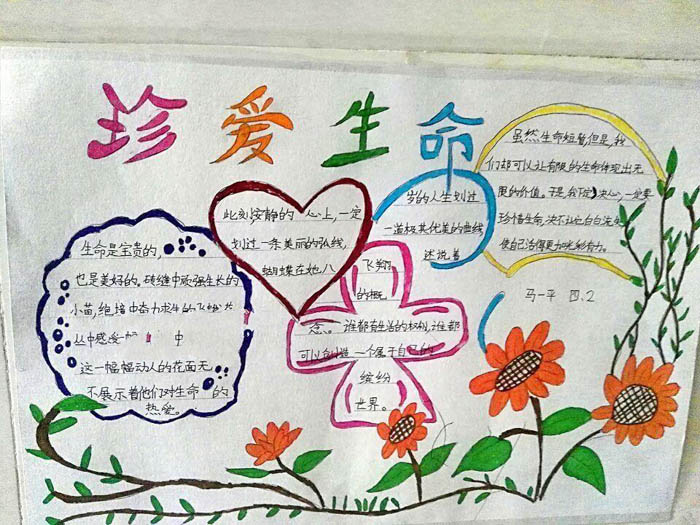 珍爱生命
生命是宝贵的,
也是美好的。砖缝中顽强生长的
小苗,绝境中奋力求生的飞蛾
丛中感受 中
这一幅幅动人的画面无
不展示着他们对生命的
热爱。
此刻,安静的 心上,一定
划过一条美丽的弘线,
蝴蝶在她八
岁的人生划过
一道极其优美的曲线
述说着
飞翔
的概
念。谁都有生活的权利,谁都
可以创造一个属于自己的
缤纷
世界。
虽然生命短暂,但是,我
们却可以让有限的生命体现出无
限的价值。于是,我下定决心,一定要
珍惜生命,决不让它白白流失
使自己活得更加光彩有力。
马一平 四.2